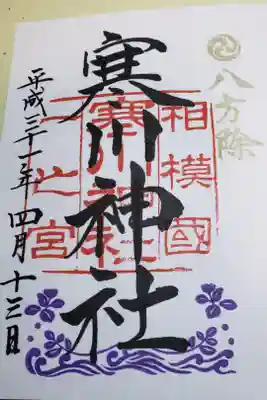 八方除
相模國
寒川神社
一之宮
平成三十一年 四月十三日